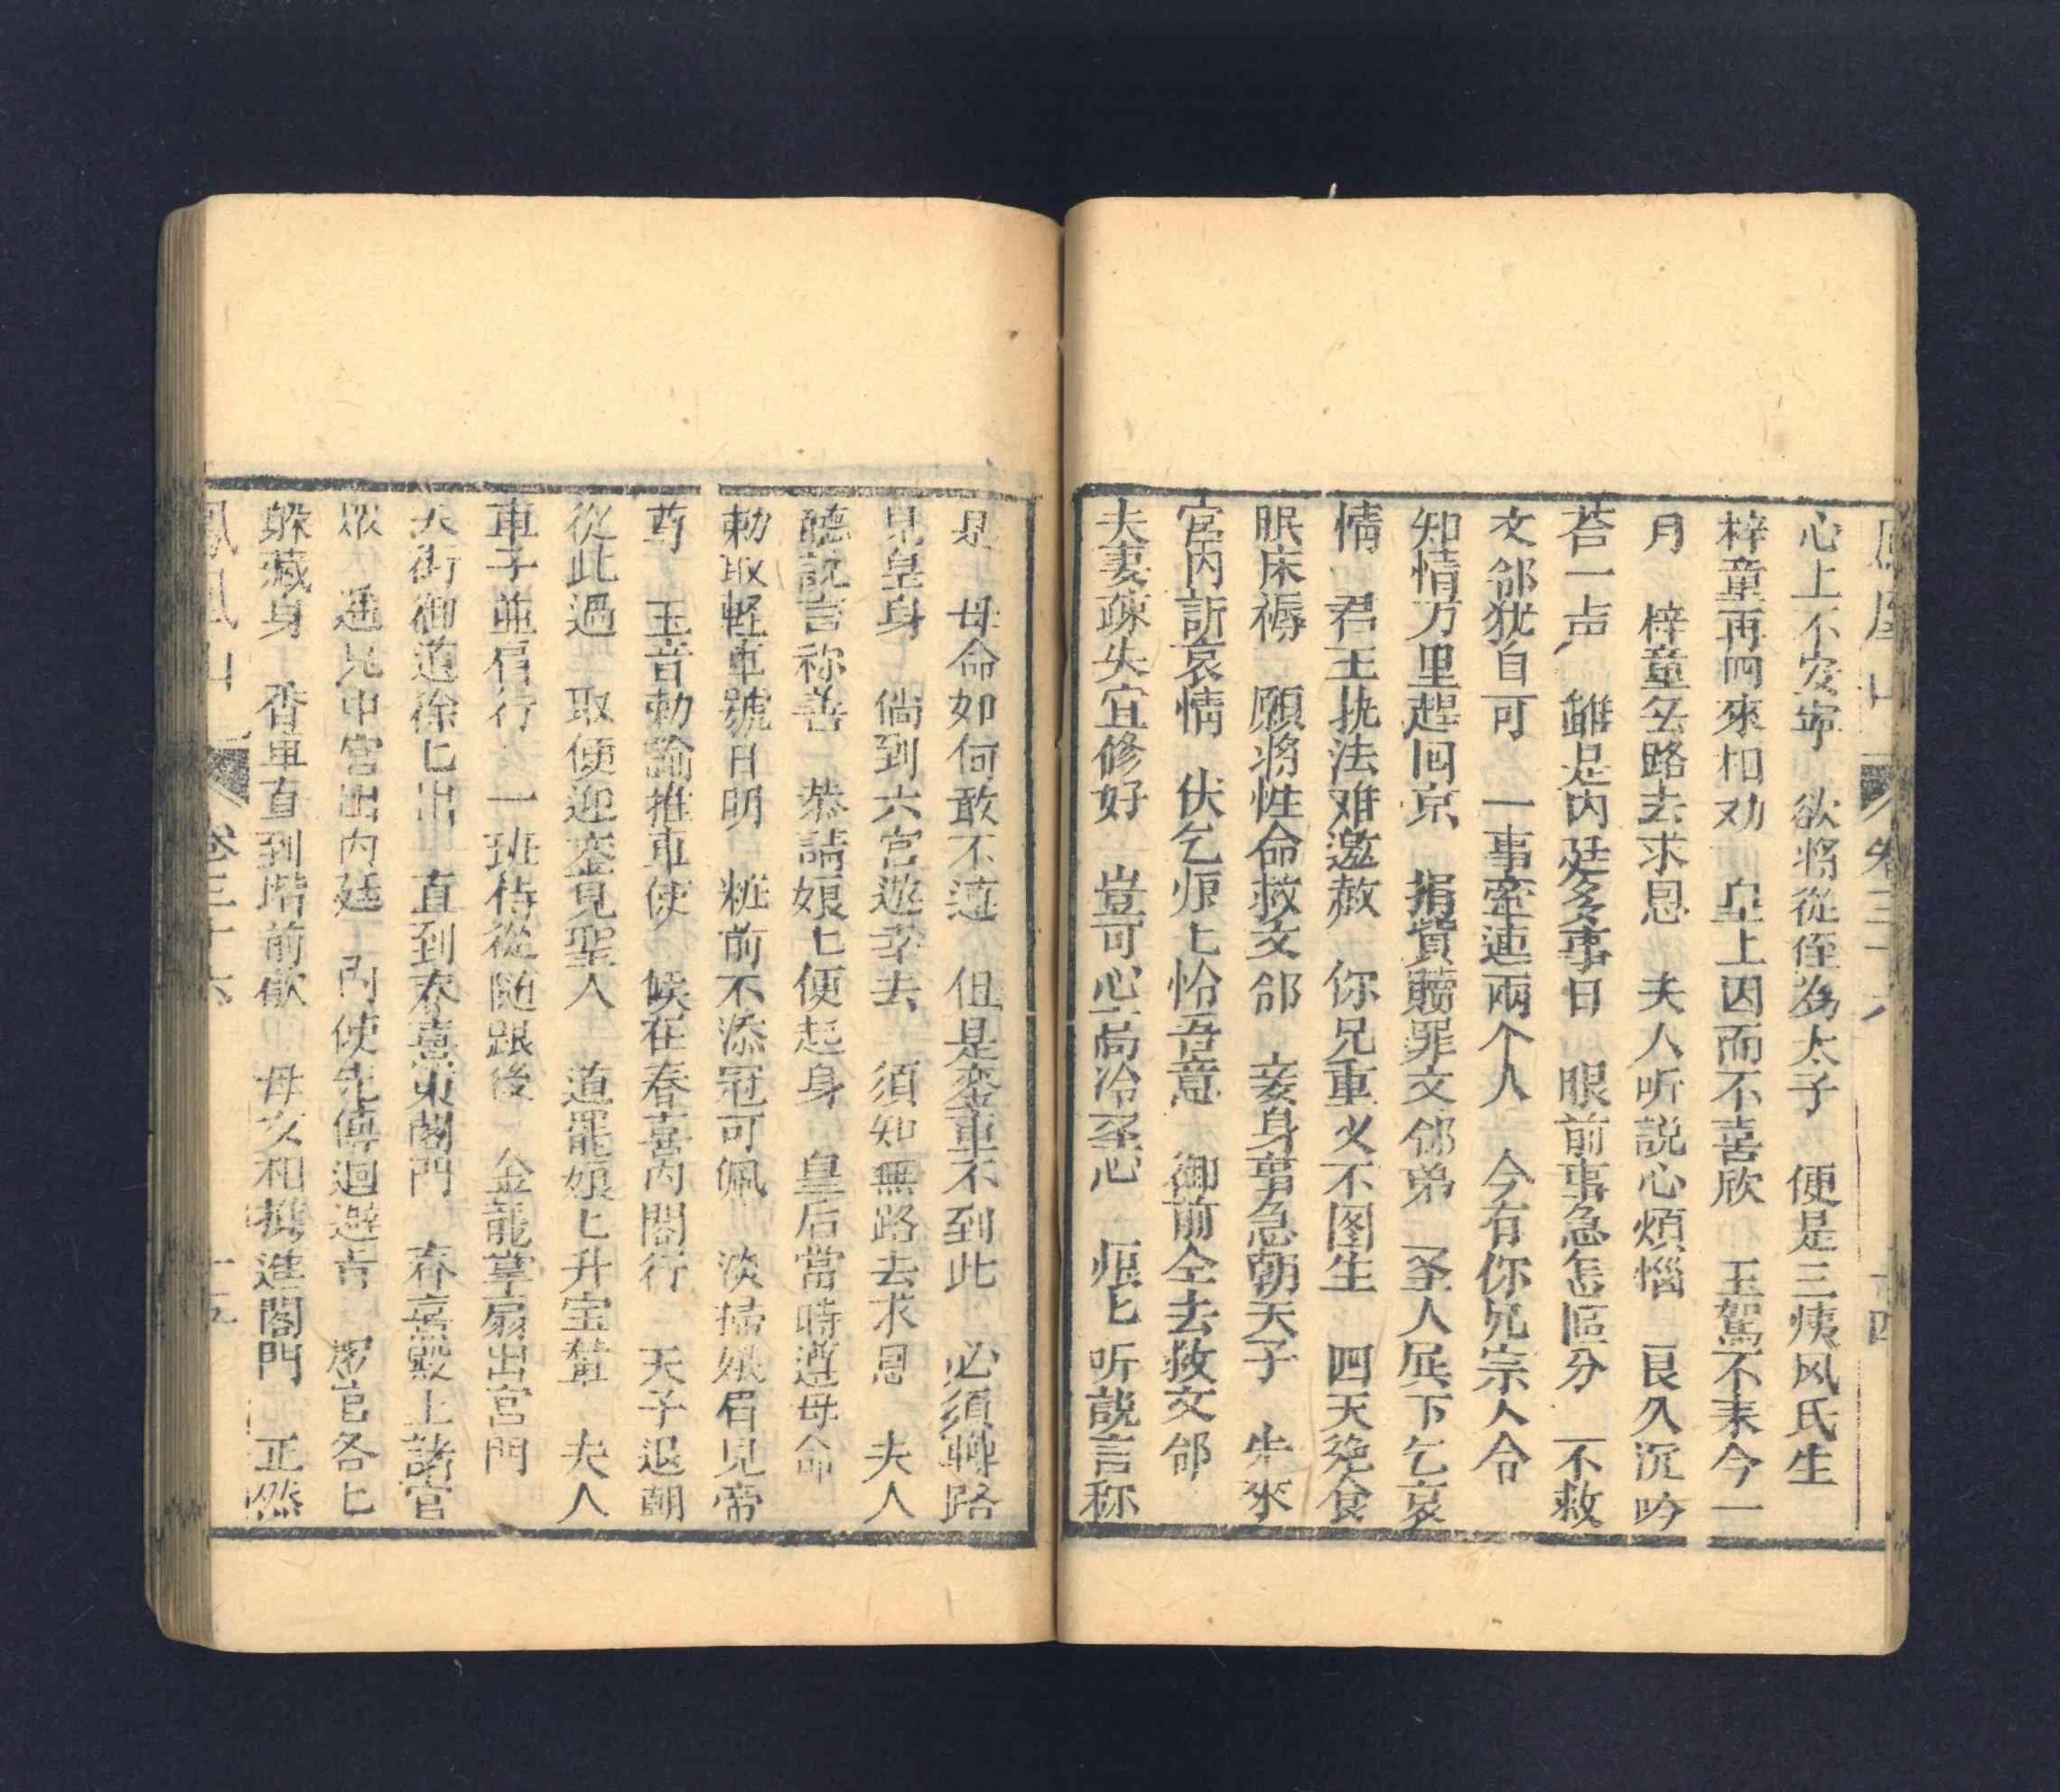 鳳凰山 卷三十六 十四
心上不安寧 欲將從侄為太子 便是三姨风氏生
梓童再四來相劝 皇上因而不喜欣 玉駕不来今一
月 梓童無路去求恩 夫人听説心煩惱 良久沉吟
荅一声 雖是内廷多事日 眼前事急怎區分 不救
文郃犹自可 一事牽連兩个人 今有你兄宗人令
知情万里趕回京 捐貲贖罪文郃弟 圣人展下乞哀
情 君王执法难邀赦 你兄重义不图生 四天绝食
眠床褥 願將性命救文郃 妾身事急朝天子 先來
宮内訴哀情 伏乞娘匕怜吾意 御前仝去救文郃
夫妻疎失宜修好 豈可心高冷圣心 娘匕听説言称
是 母命如何敢不遵 但是鑾車不到此 必須轉路
見皇身 倘到六宮遊幸去 須知無路去求恩 夫人
聽説言称善 恭請娘匕便起身 皇后當時遵母命
勅取軽車號日明 粧前不添冠可佩 淡掃娥眉見帝
尊 玉音勅諭推車使 候在春喜内閣行 天子退朝
從此過 取便迎鑾見聖人 道罷娘匕升宝輦 夫人
車子並肩行 一班侍從随跟後 金龍掌扇出宮門
天街御道徐匕出 直到春熹東閣門 春熹殿上諸官
眾 遥見中宮出内廷 内使先傳迴避旨 眾官各匕
躲藏身 香車直到堦前歇 母女相携進閣門 正然
鳳凰山 卷三十六 十五